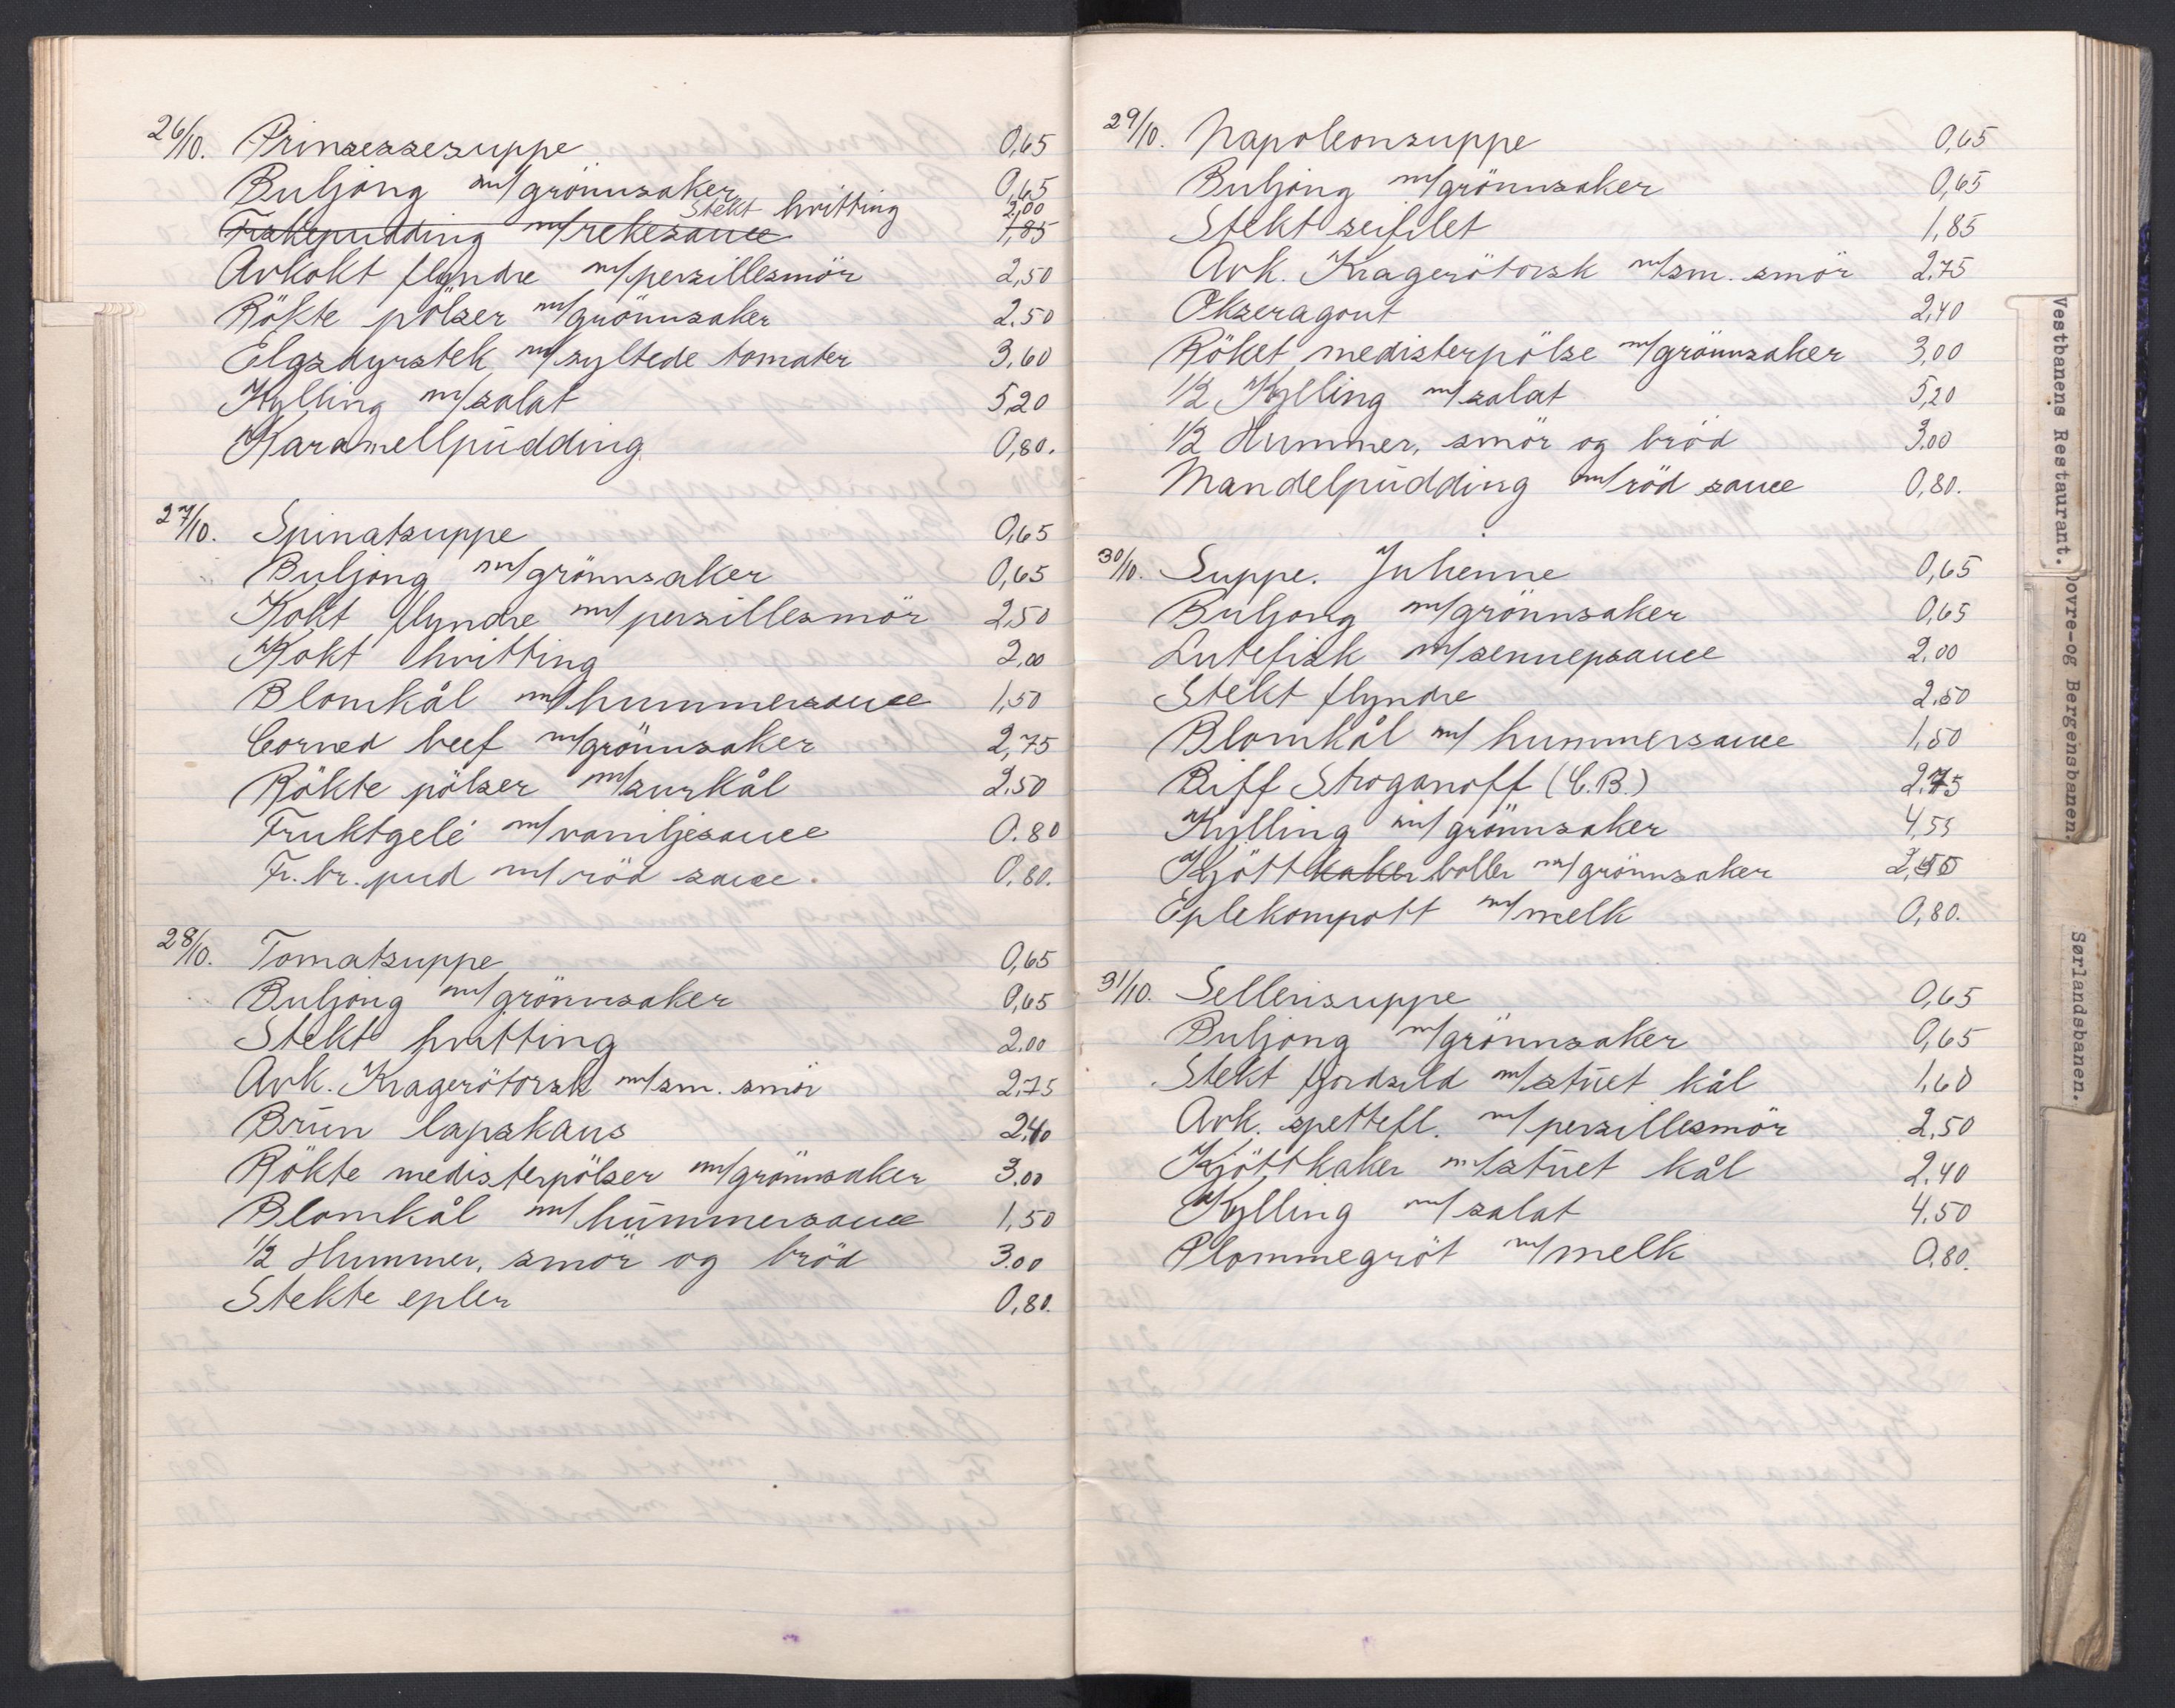 26/10. Prinsessesuppe 0,65
Buljong m/grönnsaker 0,65
Stekt hvitting 2,00
Fiskepudding m/rekesauce 1,85
Avkokt flyndre m/persillesmör 2,50
Rökte pölser m/grönnsaker 2.50
Elgsdyrstek m/syltede tomater 3.60
Kylling m/salat 5,20
Karamellpudding 0,80.
27/10. Spinatsuppe 0,65
Buljong m/grönnsaker 0,65
Kokt flyndre m/persillesmör 2,50
Kokt hvitting 2,00
Blomkål m/hummersauce 1,50
Corned beef m/grönnsaker 2,75
Rökte pölser m/surkål 2.50
Fruktgelé m/vaniljesauce 0.80
Fr. br. pud m/röd sauce. 0,80.
28/10. Tomatsuppe 0,65
Buljong m/grönnsaker 0,65
Stekt hvitting 2.00
Avk. Kragerötorsk m/sm. smör 2,75
Brun lapskaus 2,40
Rökte medisterpölser m/grönnsaker 3.00
Blomkål m/hummersauce 1,50
1/2 Hummer, smör og bröd 3.00
Stekte epler 0,80.
29/10. Napoleonsuppe 0,65
Buljong m/grönnsaker 0,65
Stekt seifilet 1,85
Avk. Kragerötorsk m/sm. smör 2,75
Okseragout 2,40
Röket medisterpölse m/grönnsaker 3,00
1/2 Kylling m/salat 5,20
1/2 Hummer, smör og bröd 3.00
Mandelpudding m/röd sauce 0,80.
30/10. Suppe. Julienne 0,65
Buljong m/grönnsaker 0,65
Lutefisk m/sennepsauce 2,00
Stekt flyndre 2.50
Blomkål m/hummersauce 1,50
Biff Stroganoff (C.B.) 2.75
Kylling m/grönnsaker 4,5
Kjöttkaker boller m/grönnsaker
Eplekompott m/melk 0,80.
31/10. Sellerisuppe 0,65
Buljong m/grönnsaker 0,65
Stekt fjordsild m/stuet kål 1,60
Avk. spettefl. m/persillesmör 2,50
Kjöttkaker m/stuet kål 2.40
Kylling m/salat 4.50
Plommegröt m/melk 0,80.
Vestbanens Restaurant.
Dovre-og Bergensbanen.
Sørlandsbanen.